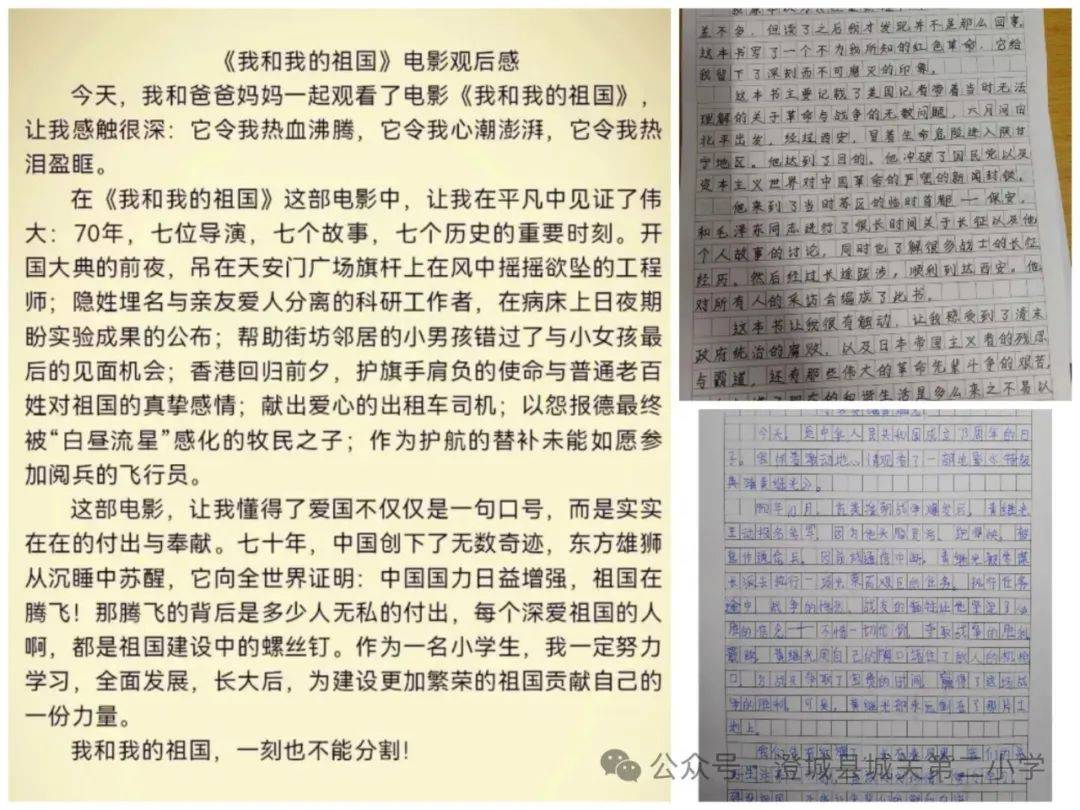 《我和我的祖国》电影观后感
今天，我和爸爸妈妈一起观看了电影《我和我的祖国》，
让我感触很深：它令我热血沸腾，它令我心潮澎湃，它令我热
泪盈眶。
在《我和我的祖国》这部电影中，让我在平凡中见证了伟
大：70年，七位导演，七个故事，七个历史的重要时刻。开
国大典的前夜，吊在天安门广场旗杆上在风中摇摇欲坠的工程
师；隐姓埋名与亲友爱人分离的科研工作者，在病床上日夜期
盼实验成果的公布；帮助街坊邻居的小男孩错过了与小女孩最
后的见面机会；香港回归前夕，护旗手肩负的使命与普通老百
姓对祖国的真挚感情；献出爱心的出租车司机；以怨报德最终
被“白昼流星”感化的牧民之子；作为护航的替补未能如愿参
加阅兵的飞行员。
这部电影，让我懂得了爱国不仅仅是一句口号，而是实实
在在的付出与奉献。七十年，中国创下了无数奇迹，东方雄狮
从沉睡中苏醒，它向全世界证明：中国国力日益增强，祖国在
腾飞！那腾飞的背后是多少人无私的付出，每个深爱祖国的人
啊，都是祖国建设中的螺丝钉。作为一名小学生，我一定努力
学习，全面发展，长大后，为建设更加繁荣的祖国贡献自己的
一份力量。
我和我的祖国，一刻也不能分割！
差不多，但读了之后我才发现并不是那么回事。
这本书写了一个不为我所知的红色革命，它给
我留下了深刻而不可磨灭的印象。
这本书主要记载了美国记者带着当时无法
理解的关于革命与战争的无数问题，六月间由
北平出发，经过西安，冒着生命危险进入陕甘
宁地区。他达到了目的。他冲破了国民党以及
资本主义世界对中国革命的严密的新闻封锁。
他来到了当时苏区的临时首都——保安。
和毛泽东同志进行了很长时间关于长征以及他
个人故事的讨论，同时也了解很多战士的长征
经历。然后经过长途跋涉，顺利到达西安。他
对所有人的采访合编成了此书。
这本书让我很有触动，让我感受到了清末
政府统治的腐败，以及日本帝国主义者的残忍
与霸道，还有那些伟大的革命先辈斗争的艰苦
现在的和谐生活是多么来之不易以
今天，是中华人民共和国成立73周年的日
观看了一部电影《特级
英雄黄继光》。
主动报名参军，因为他头脑灵活，跑得快，被
长派去执行一项光荣而艰巨的任务。执行任务
途中，战争的惨烈，战友的牺牲让他坚定了必
胜的信念——不惜一切代价，争取战争的胜利
最后，黄继光用自己的胸口堵住了敌人的机枪
口，为战友争取了宝贵的时间，赢得了这场战
争的胜利。可是，黄继光却永远倒在了那片土
地上。
公众号·澄城县城关第二小学